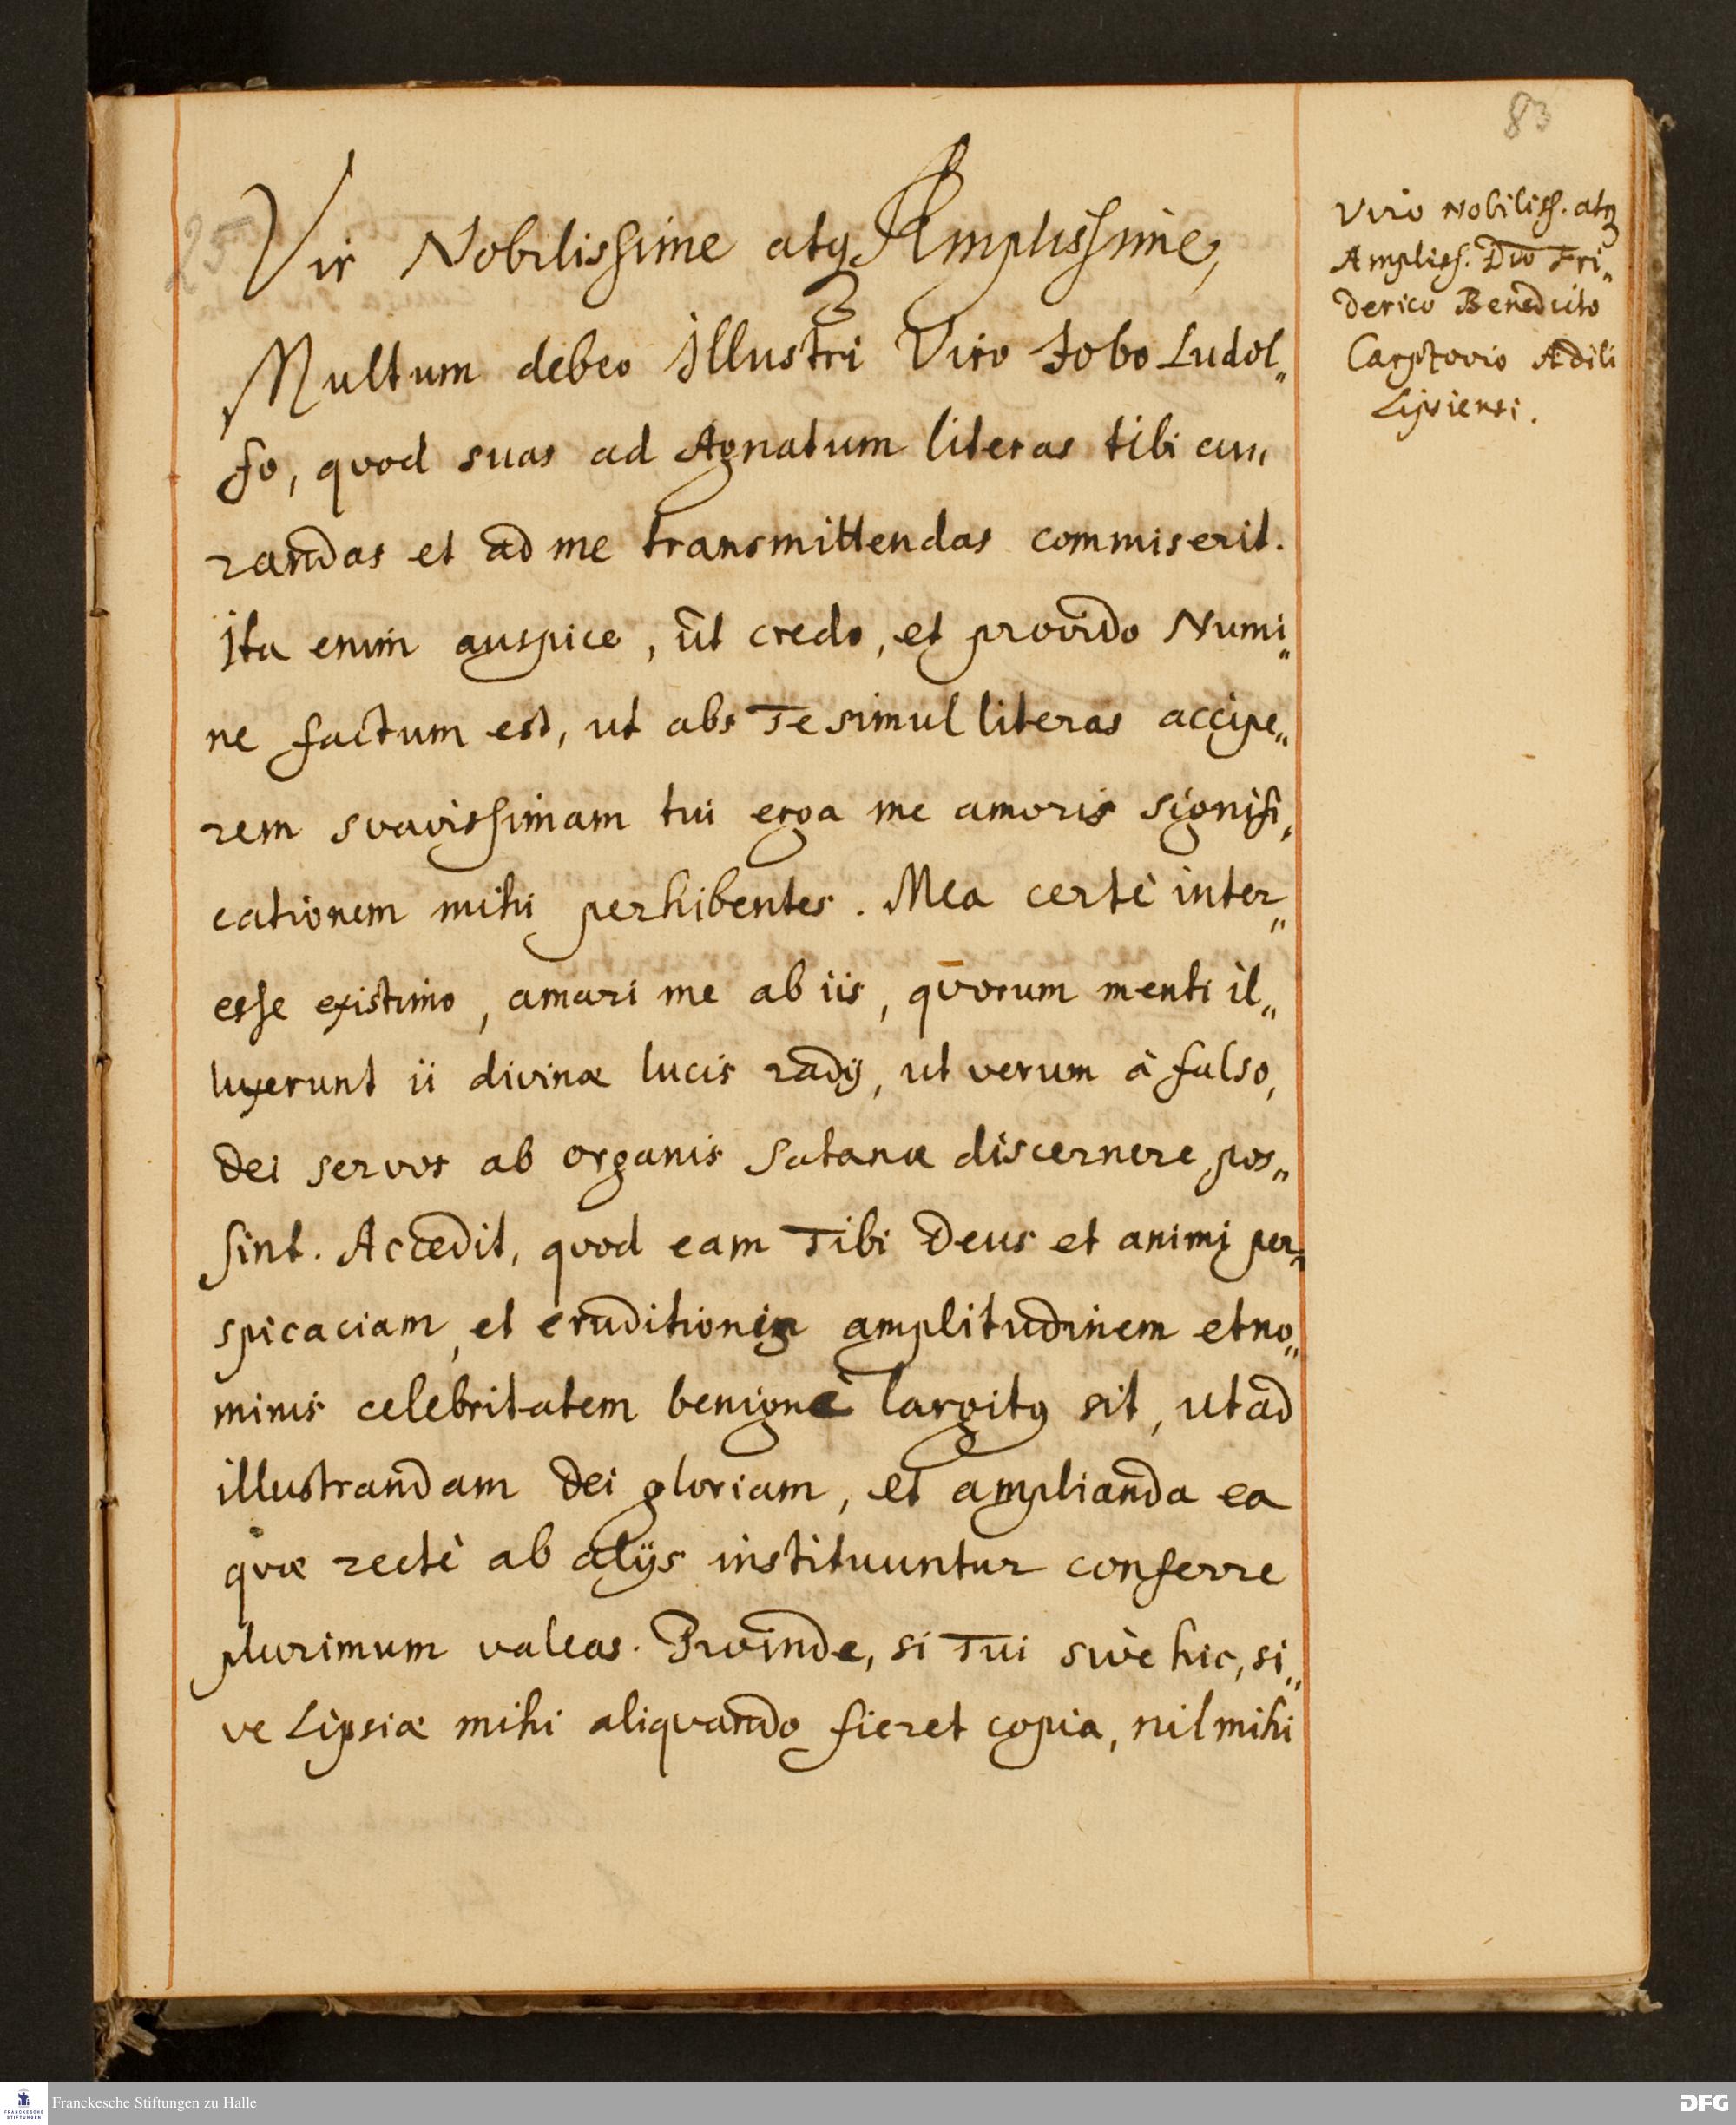 83
25
Vir Nobilissime atq3 Amplissime,
Multum debeo Illustri Viro Jobo Ludol„
fo, quod suas ad Agnatum literas tibi cu„
randas et ad me transmittendas commiserit.
Ita enim auspice, ut credo, et provido Numi„
ne factum est, ut abs Te simul literas accipe„
rem svavissimam tui erga me amoris signifi„
cationem mihi perhibentes. Mea certè inter„
esse existimo, amari me ab iis, quorum menti il„
luxerunt ii divinæ lucis radij, ut verum à falso,
Dei servos ab organis Satanæ discernere pos„
sint. Accedit, quod eam Tibi Deus et animi per„
spicaciam, et eruditionis amplitudinem et no„
minis celebritatem benignè largitq sit, ut ad
illustrandam Dei gloriam, et amplianda ea
quæ rectè ab alijs instituuntur conferre
plurimum valeas. Proinde, si Tui sive hic, si„
ve Lipsiæ mihi aliquando fieret copia, nil mihi
Viro Nobiliss. atq3
Ampliss. Dno Fri„
derico Benedicto
Carpzovio Ædili
Lipsiensi.
Franckesche Stiftungen zu Halle
FRANCKESCHE
STIFTUNGEN
DFG